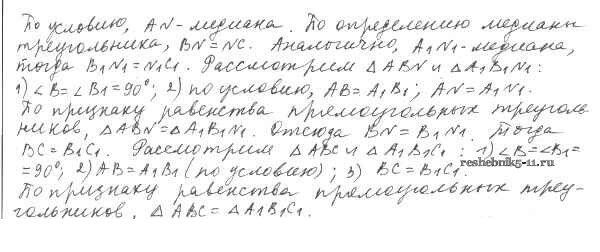 По условию, AN-медиана. По определению медианы
треугольника, BN=NC. Аналогично, A₁N₁-медиана,
тогда B₁N₁=N₁C₁. Рассмотрим △ABN и △A₁B₁N₁:
1) ∠B=∠B₁=90°; 2) по условию, AB=A₁B₁; AN=A₁N₁.
По признаку равенства прямоугольных треуголь-
ников, △ABN=△A₁B₁N₁. Отсюда BN=B₁N₁, тогда
BC=B₁C₁. Рассмотрим △ABC и △A₁B₁C₁: 1) ∠B=∠B₁=
=90°; 2) AB=A₁B₁ (по условию); 3) BC=B₁C₁.
reshebnik5-11.ru
По признаку равенства прямоугольных треу-
гольников, △ABC=△A₁B₁C₁.